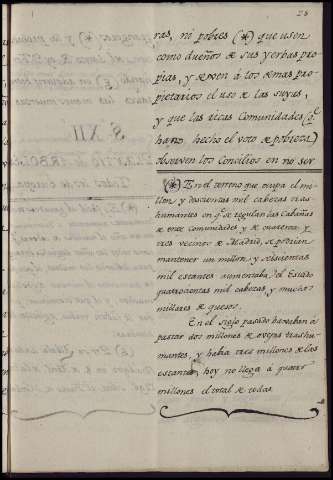 28
ras, ni pobres (*) que usen
como dueños de sus yerbas pro-
pias, y dexen á los demas pro-
pietarios el uso de las suyas,
y que las ricas Comunidades (q.e
han hecho el voto de pobreza)
observen los Concilios en no ser
(*) En el terreno que ocupa el mi-
llon y doscientas mil cabezas tras-
humantes en q.e se regulan las Cabañas
de once comunidades y de quarenta y
tres vecinos de Madrid, se podian
mantener un millon y seiscientas
mil estantes aumentaba el Estado
quatrocientas mil cabezas, y muchos
millares de quesos.
En el siglo pasado baxaban á
pastar dos millones de ovejas trashu-
mantes, y habia tres millones de las
estantes, hoy no llega á quatro
millones el total de todas.
§. XII